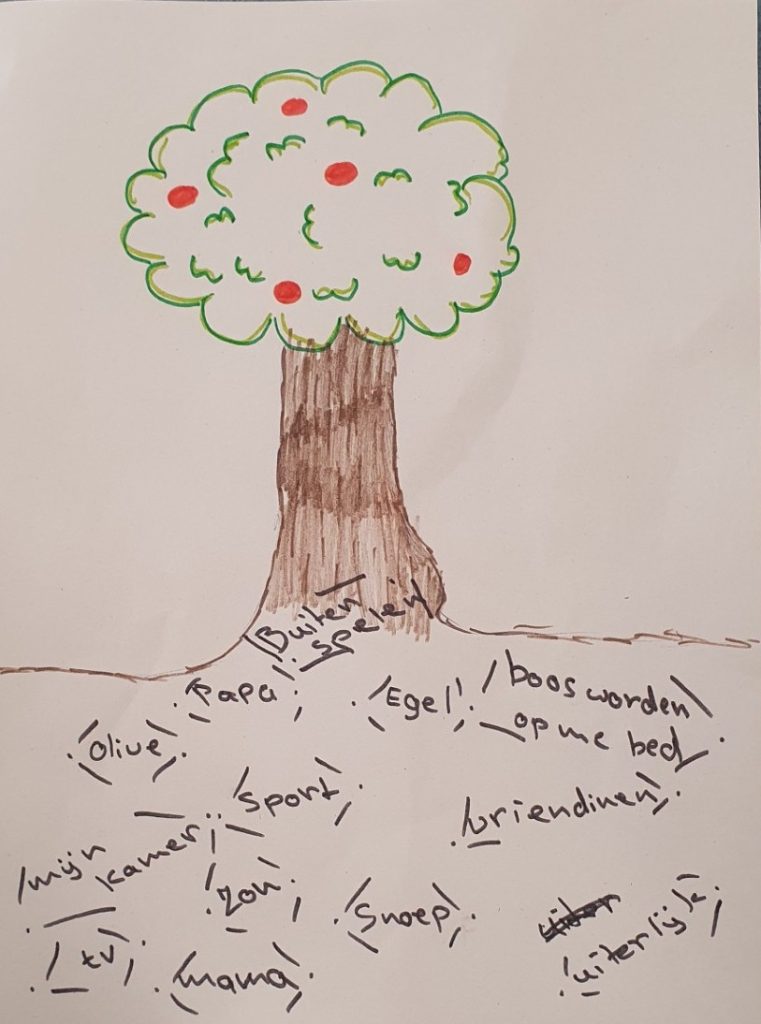 Buiten
spelen
Papa
Egel
boos worden
op me bed
Olive
sport
vriendinen
mijn
kamer
zon
Snoep
uiterlijk
tv
mama